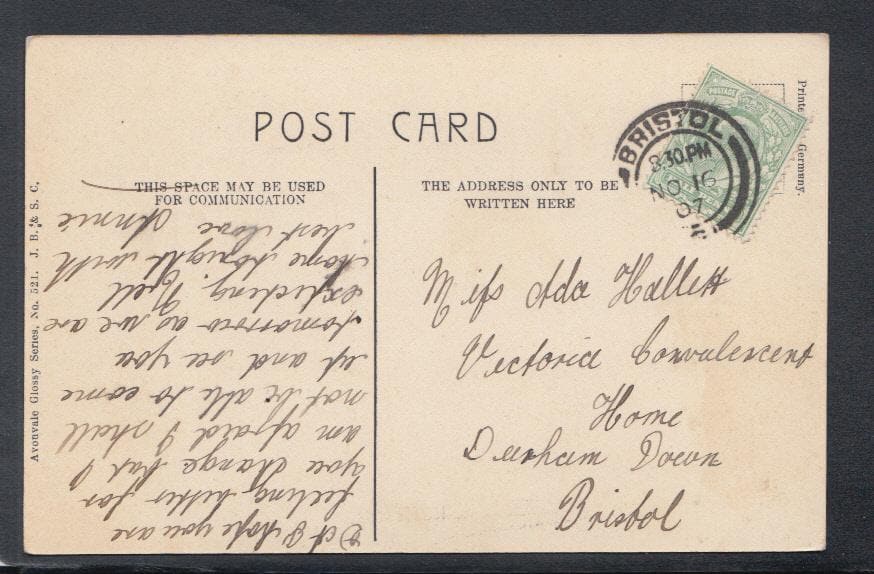 POST CARD
THIS SPACE MAY BE USED
FOR COMMUNICATION
THE ADDRESS ONLY TO BE
WRITTEN HERE
Printed Germany.
BRISTOL
8.30.PM
NO 16
07
POSTAGE
Avonvale Glossy Series, No. 521. J. B. & S. C.
I hope you are
feeling better for
you change but I
am afraid I shall
not be able to come
up and see you
tomorrow as we are
expecting Nell
home tonight with
best love Annie
Miss Ada Hallett
Victoria Convalescent
Home
Durham Down
Bristol